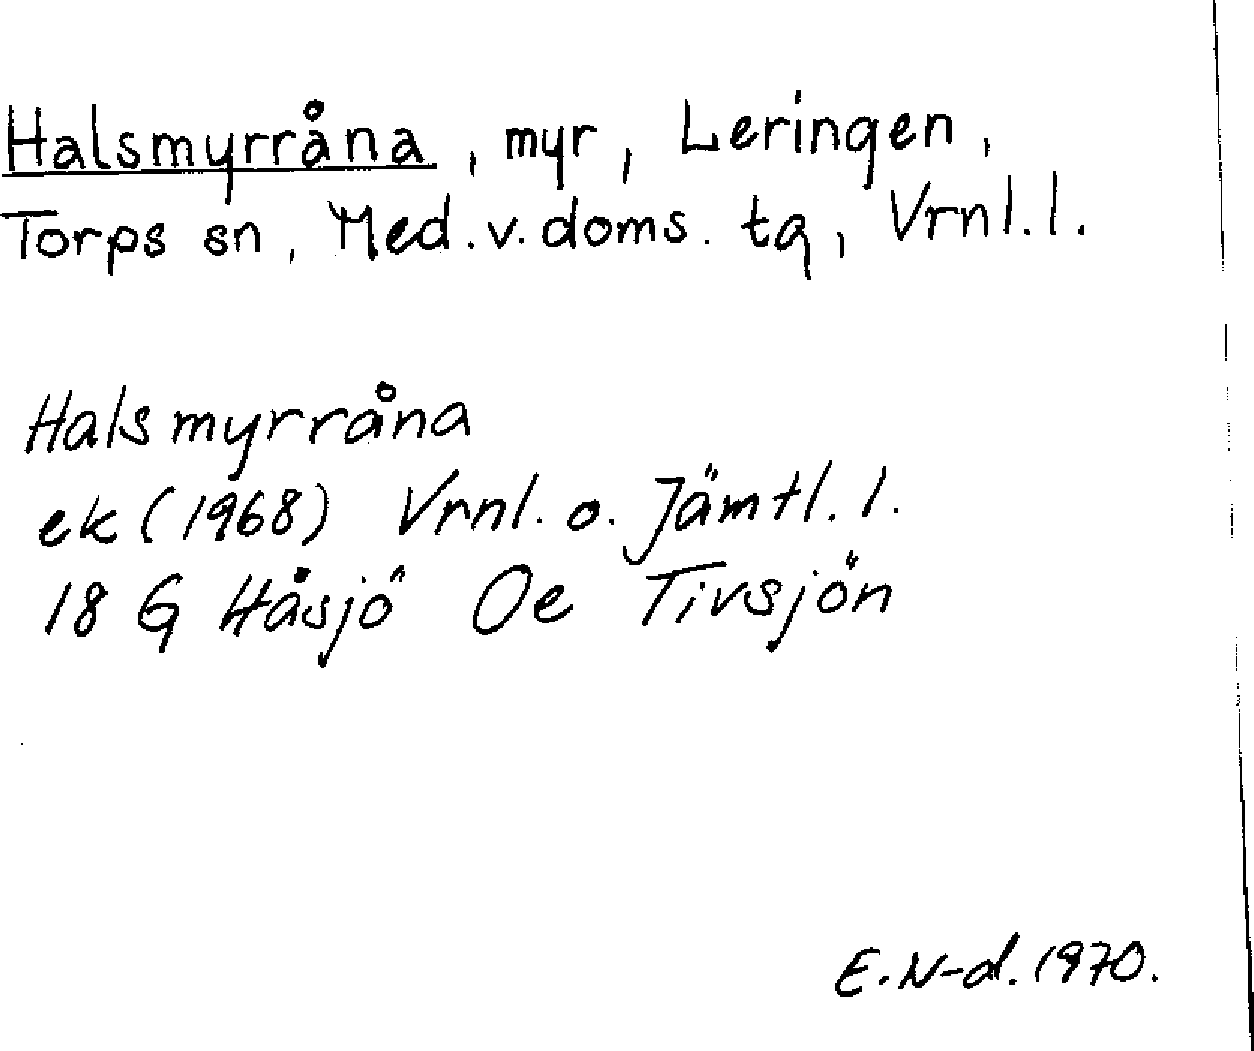 Halsmyrråna, myr, Leringen,
Torps sn, Med.v.doms. tg, Vrnl.l.
Halsmyrråna
ek (1968) Vrnl. o. Jämtl. l.
18 G Håsjö Oe Tivsjön
E. N-d. 1970.